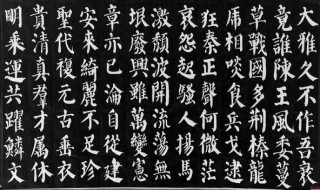 大雅久不作吾衰
竟誰陳王風委蔓
草戰國多荆榛龍
虎相啖食兵戈逮
狂秦正聲何微茫
哀怨起騷人揚馬
激頹波開流蕩無
垠廢興雖萬變憲
章亦已淪自從建
安來綺麗不足珍
聖代複元古垂衣
貴清真群才属休
明乘運共躍鱗文